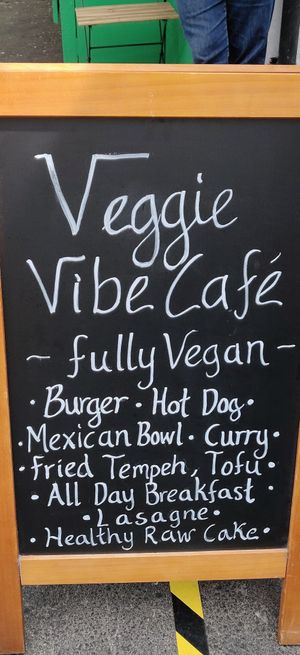 Veggie
Vibe Café
- fully Vegan -
· Burger · Hot Dog ·
· Mexican Bowl · Curry ·
· Fried Tempeh, Tofu ·
· All Day Breakfast ·
· Lasagne ·
· Healthy Raw Cake ·